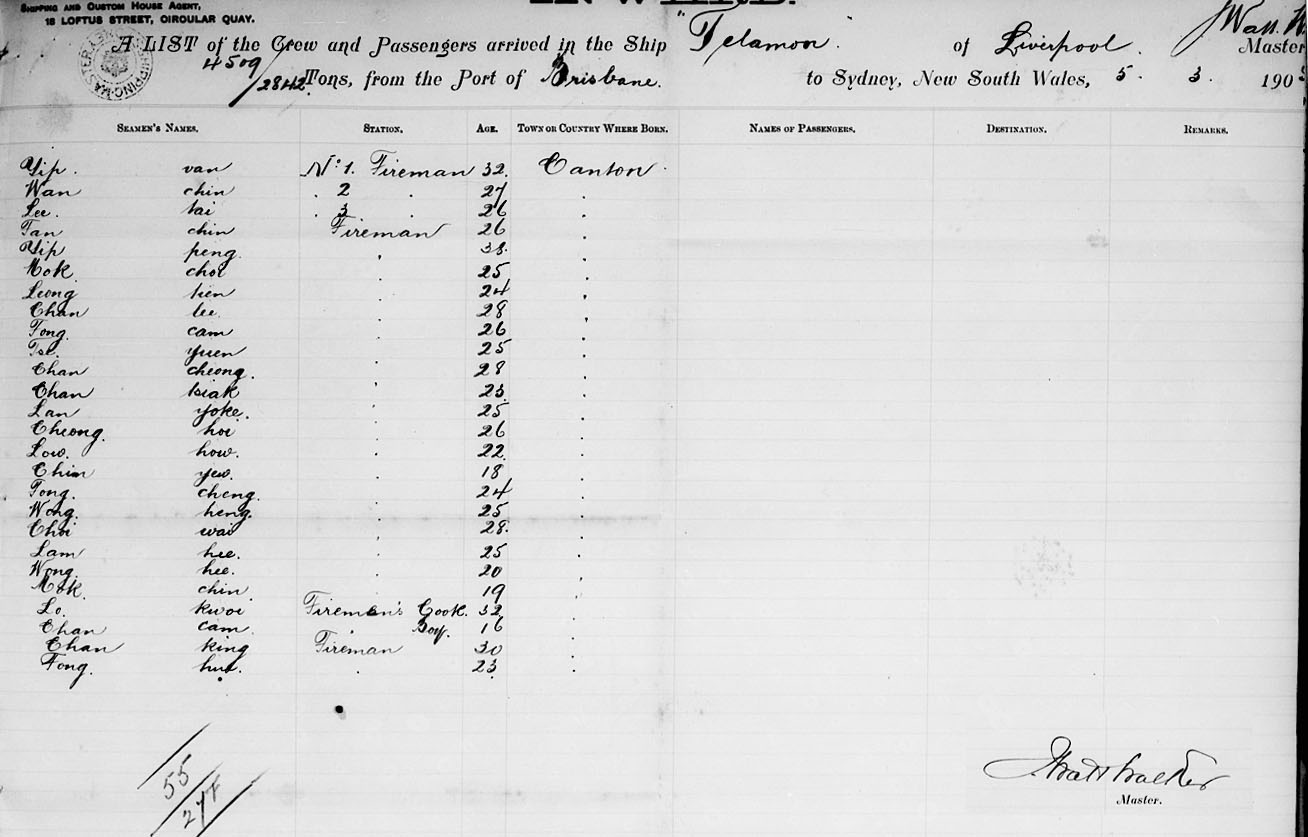 SHIPPING AND CUSTOM HOUSE AGENT,
18 LOFTUS STREET, CIRCULAR QUAY.
INWARD.
A LIST of the Crew and Passengers arrived in the Ship "Telamon of Liverpool J Watt Master
4509/2842 Tons, from the Port of Brisbane. to Sydney, New South Wales, 5. 3. 190
SEAMEN'S NAMES. STATION. AGE. TOWN OR COUNTRY WHERE BORN. NAMES OF PASSENGERS. DESTINATION. REMARKS.
Yip van No 1. Fireman 32. Canton
Wan chin . 2 . 27 .
Lee tai . 3 . 26 .
Tan chin Fireman 26 .
Yip peng . 38. .
Mok choi . 25 .
Leong . 24 .
Chan lee . 28 .
Fong cam . 26 .
Tse. yuen . 25 .
Chan cheong. . 28 .
Chan tsiak . 23 .
Lan yoke. . 25 .
Cheong. hoi . 26 .
Low. how. . 22. .
Chin yew. . 18 .
Tong. cheng. . 24 .
Wong. heng. . 25 .
Choi wai . 28. .
Lam hee. . 25 .
Wong hee. . 20 .
Mok. chin . 19 .
Lo. kwoi Fireman's Cook. 32 .
Chan cam . Boy. 16 .
Chan king Fireman 30 .
Fong. . 23 .
55
J Watt Walker
Master.